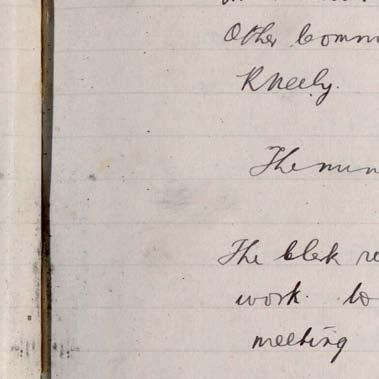 Other Comm
R Neely.
The min
The Clek re
work to
meeting